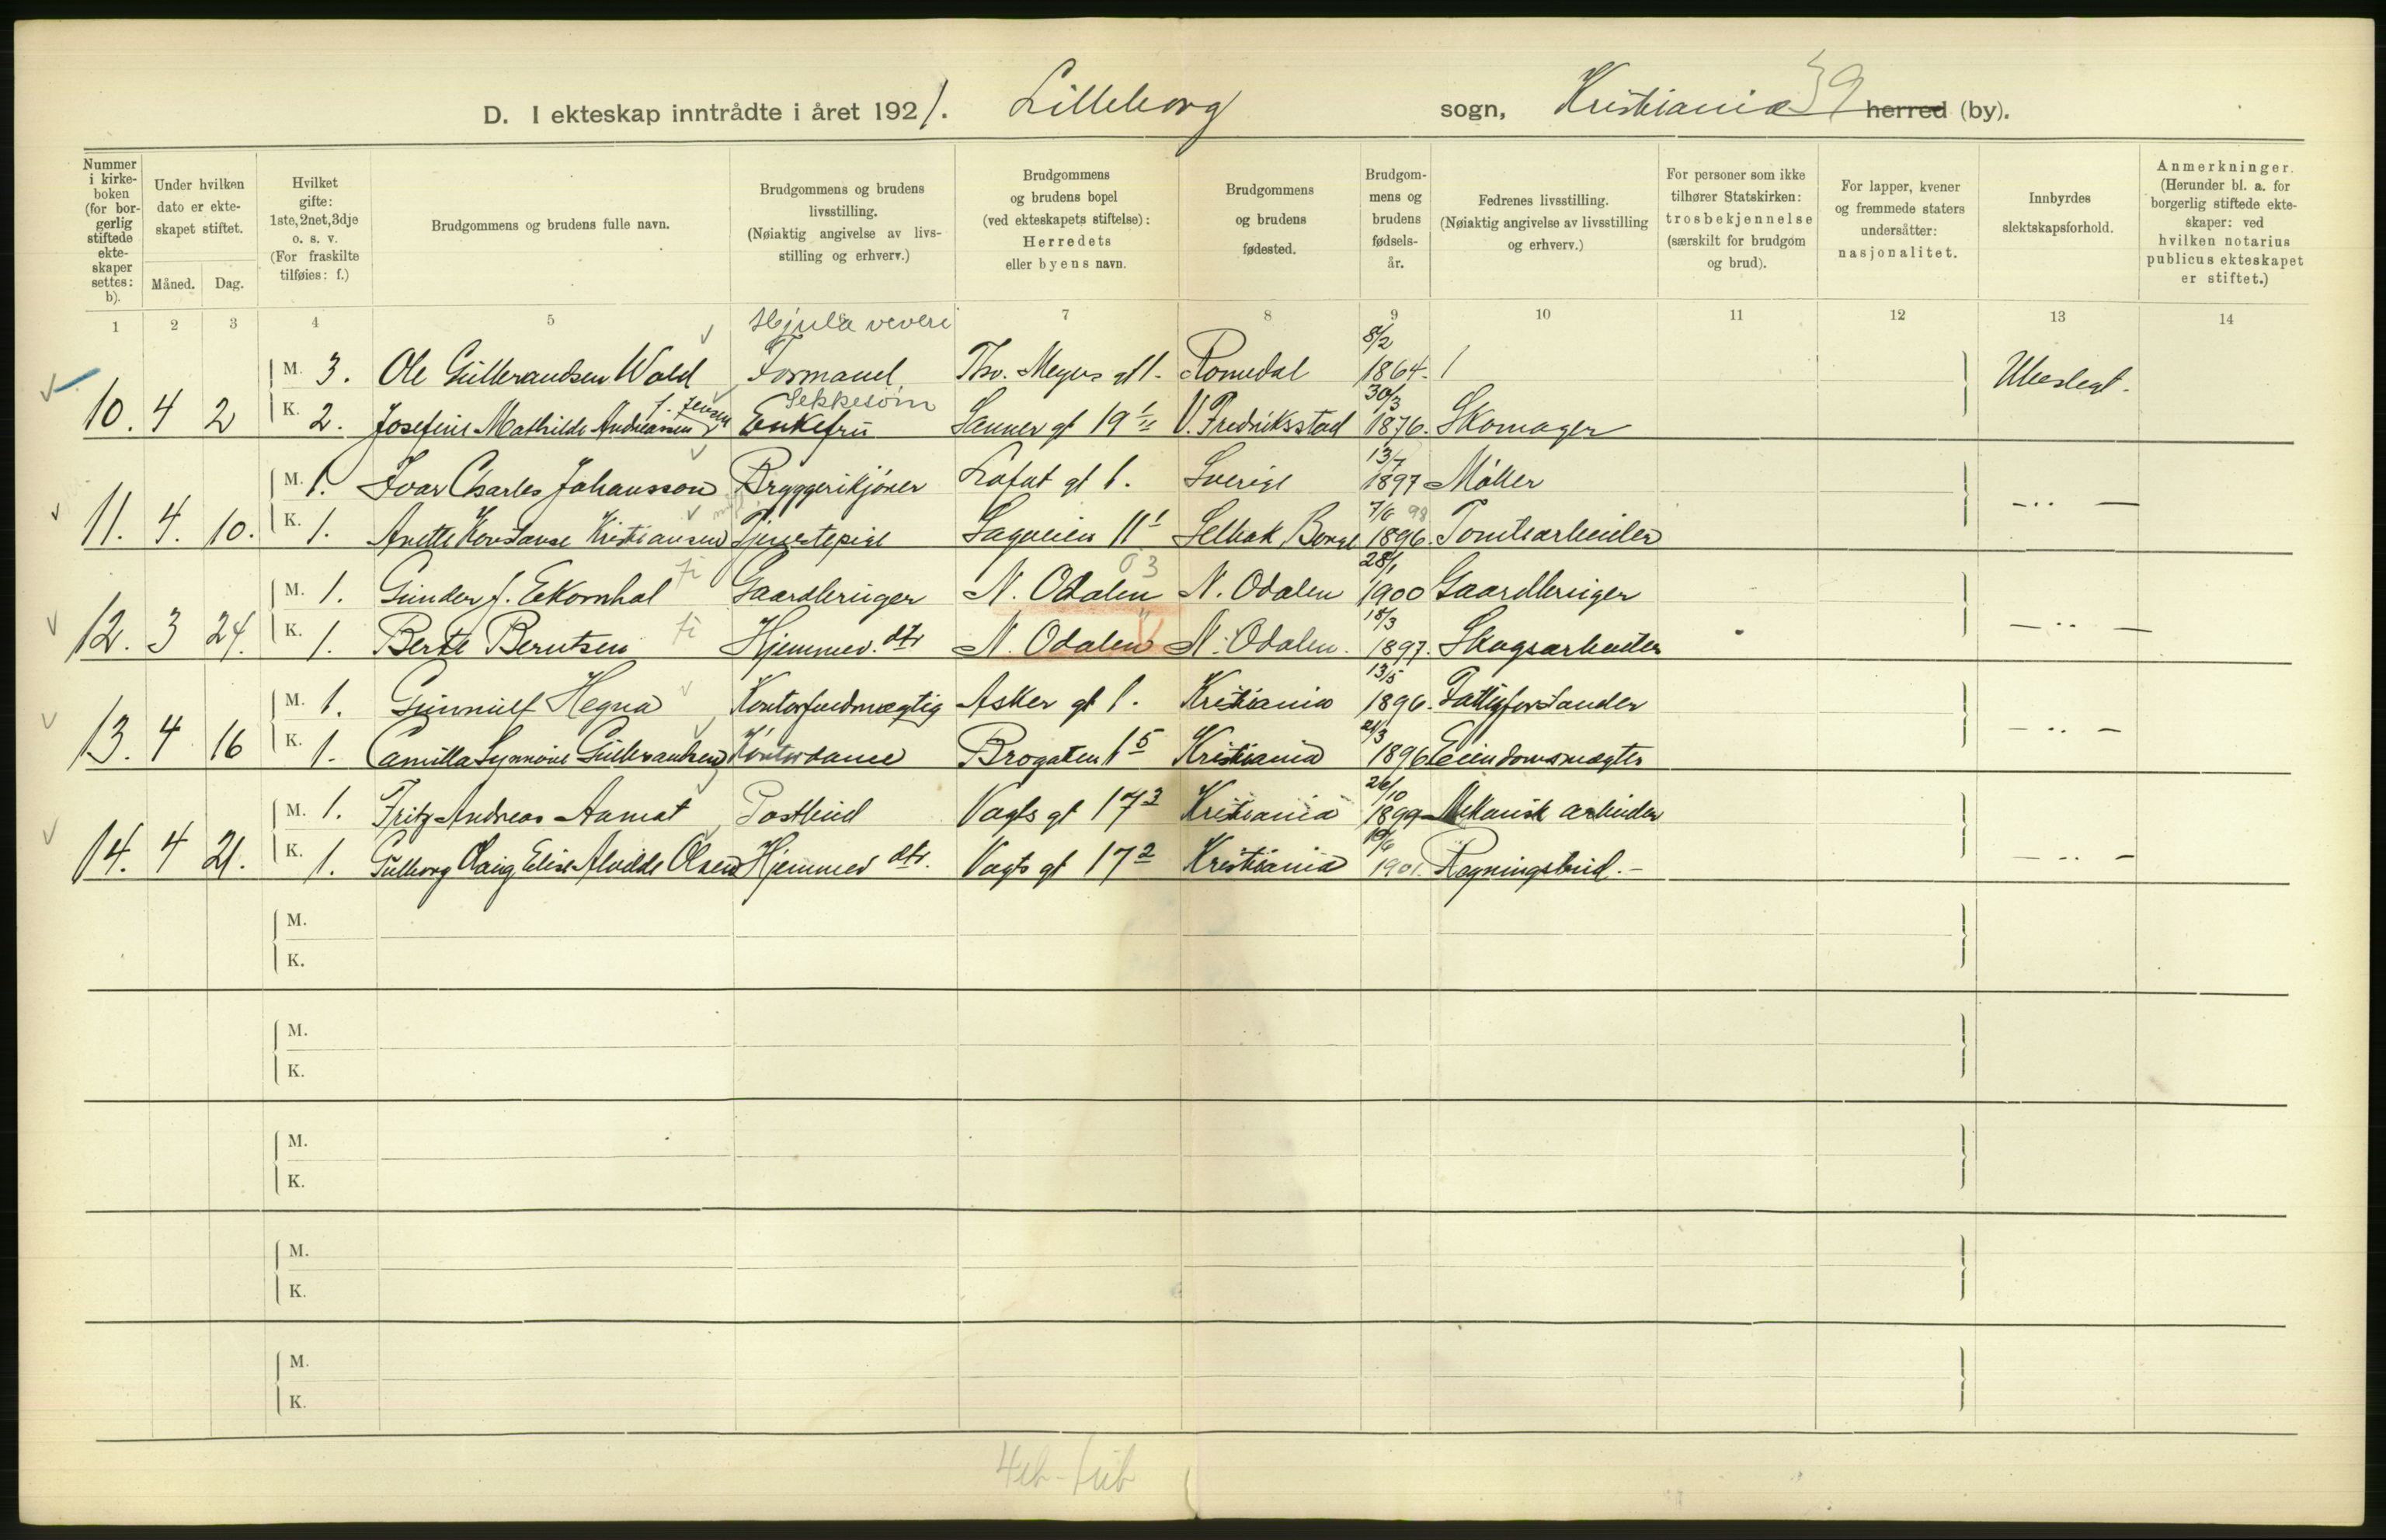 D. I ekteskap inntrådte i året 1921. Lilleborg sogn, Kristiania 39 herred (by).
Nummer i kirkeboken (for borgerlig stiftede ekteskaper settes: b).
Under hvilken dato er ekteskapet stiftet.
Måned. Dag.
Hvilket gifte: 1ste, 2net, 3dje o. s. v. (For fraskilte tilføies: f.)
Brudgommens og brudens fulle navn.
Brudgommens og brudens livsstilling. (Nøiaktig angivelse av livsstilling og erhverv.)
Brudgommens og brudens bopel (ved ekteskapets stiftelse): Herredets eller byens navn.
Brudgommens og brudens fødested.
Brudgommens og brudens fødselsår.
Fedrenes livsstilling. (Nøiaktig angivelse av livsstilling og erhverv.)
For personer som ikke tilhører Statskirken: trosbekjennelse (særskilt for brudgom og brud).
For lapper, kvener og fremmede staters undersåtter: nasjonalitet.
Innbyrdes slektskapsforhold.
Anmerkninger. (Herunder bl. a. for borgerlig stiftede ekteskaper: ved hvilken notarius publicus ekteskapet er stiftet.)
1 2 3 4 5 7 8 9 10 11 12 13 14
Hjula veveri 8/2
M. 3. Ole Gulbrandsen Wold Formand Thv. Meyers gt 1. Romedal 1864. / Ubeslegt.
f. Jensen Sekkesøm 30/3
10. 4 2 K. 2. Josefine Mathilde Andreassen Enkefru Sanner gt 19 V. Fredriksstad 1876. Skomager
13/7
M. 1. Ivar Charles Johansson Bryggerikjører Lofot gt 1. Sverige 1897 Møller — ·· —
7/6 98
11. 4. 10. K. 1. Anette Konstanse Kristiansen Tjenestepike Sagveien 11 Selbak, Borge 1896. Tomtearbeider
03 28/1
M. 1. Gunder J. Ekornhol Gaardbruger N. Odalen N. Odalen 1900 Gaardbruger — ·· —
18/3
12. 3 24. K. 1. Berte Berntsen Hjemmev. dtr N. Odalen N. Odalen. 1897. Skogsarbeider
13/5
M. 1. Gunnulf Hegna Kontorfuldmægtig Asker gt 1. Kristiania 1896. Fattigforstander — ·· —
21/3
13. 4 16 K. 1. Camilla Synnøve Gulbrandsen Kontordame Brogaten 15 Kristiania 1896 Eiendomsmægler
26/10
M. 1. Fritz Andreas Aamot Postbud Vogts gt 17 3 Kristiania 1899 Mekanisk arbeider — ·· —
19/6
14. 4 21. K. 1. Gulborg Olaug Elise Alvilde Olsen Hjemmev dtr. Vogts gt 17 2 Kristiania 1901. Regningsbud. —
M.
K.
M.
K.
M.
K.
M.
K.
M.
K.